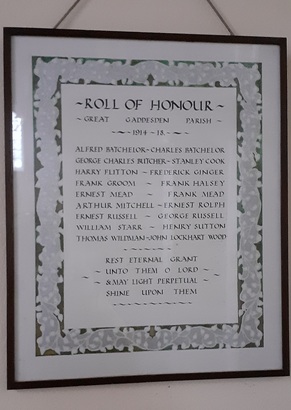 ~ROLL OF HONOUR~
~GREAT GADDESDEN PARISH~
~1914-18.~
ALFRED BATCHELOR~CHARLES BATCHELOR
GEORGE CHARLES BUTCHER~STANLEY COOK
HARRY FLITTON ~ FREDERICK GINGER
FRANK GROOM ~ FRANK HALSEY
ERNEST MEAD ~ FRANK MEAD
ARTHUR MITCHELL~ERNEST ROLPH
ERNEST RUSSELL ~ GEORGE RUSSELL
WILLIAM STARR ~ HENRY SUTTON
THOMAS WILDMAN~JOHN LOCKHART WOOD
REST ETERNAL GRANT
~ UNTO THEM O LORD ~
~ &MAY LIGHT PERPETUAL
SHINE UPON THEM